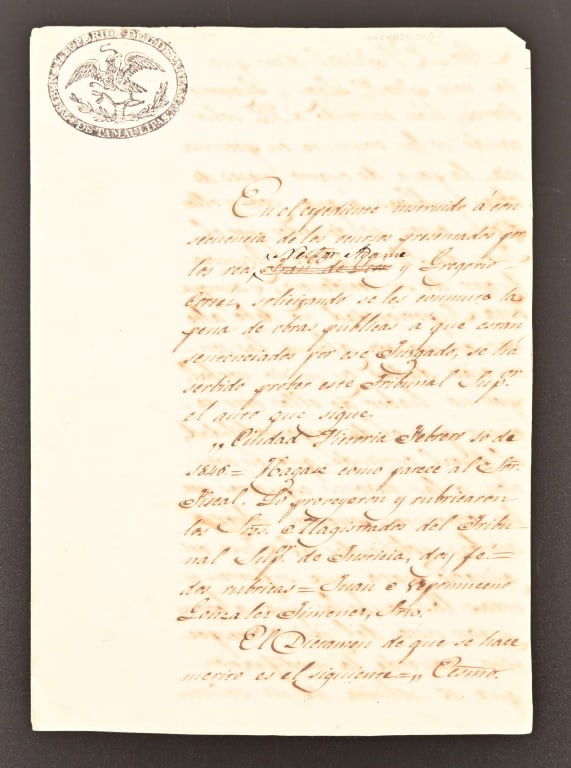 SUPERIOR DE TAMAULIPAS
En el espediente instruido á con
secuencia de los ocursos presentados por
Nestor Adame
los reos Juan de y Gregorio
Cortéz, solicitando se les conmute la
pena de obras publicas á que están
sentenciados por ese Juzgado, se há
serbido prober este Tribunal Supr.
el auto que sigue.
„ Ciudad Victoria Febrero 10 de
1848 = Hagase como parece al Sor.
Fiscal. Lo proveyeron y rubricaron
los Sres. Magistrados del Tribu-
nal Supr. de Justicia, doy fé =
dos rubricas = Juan Nepomuceno
Gonzales Ximenez, Srio.
El Dictamen de que se hace
merito es el siguiente = „ Ecsmo.